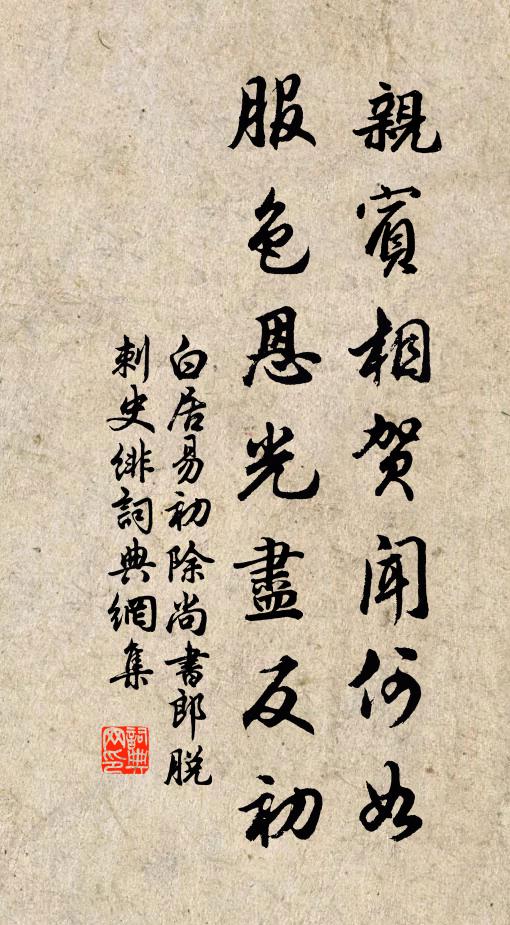 親賓相贺闻何如
服色恩光盡反初
白居易初除尚書郎脱
刺史绯詞典網集
詞典网印